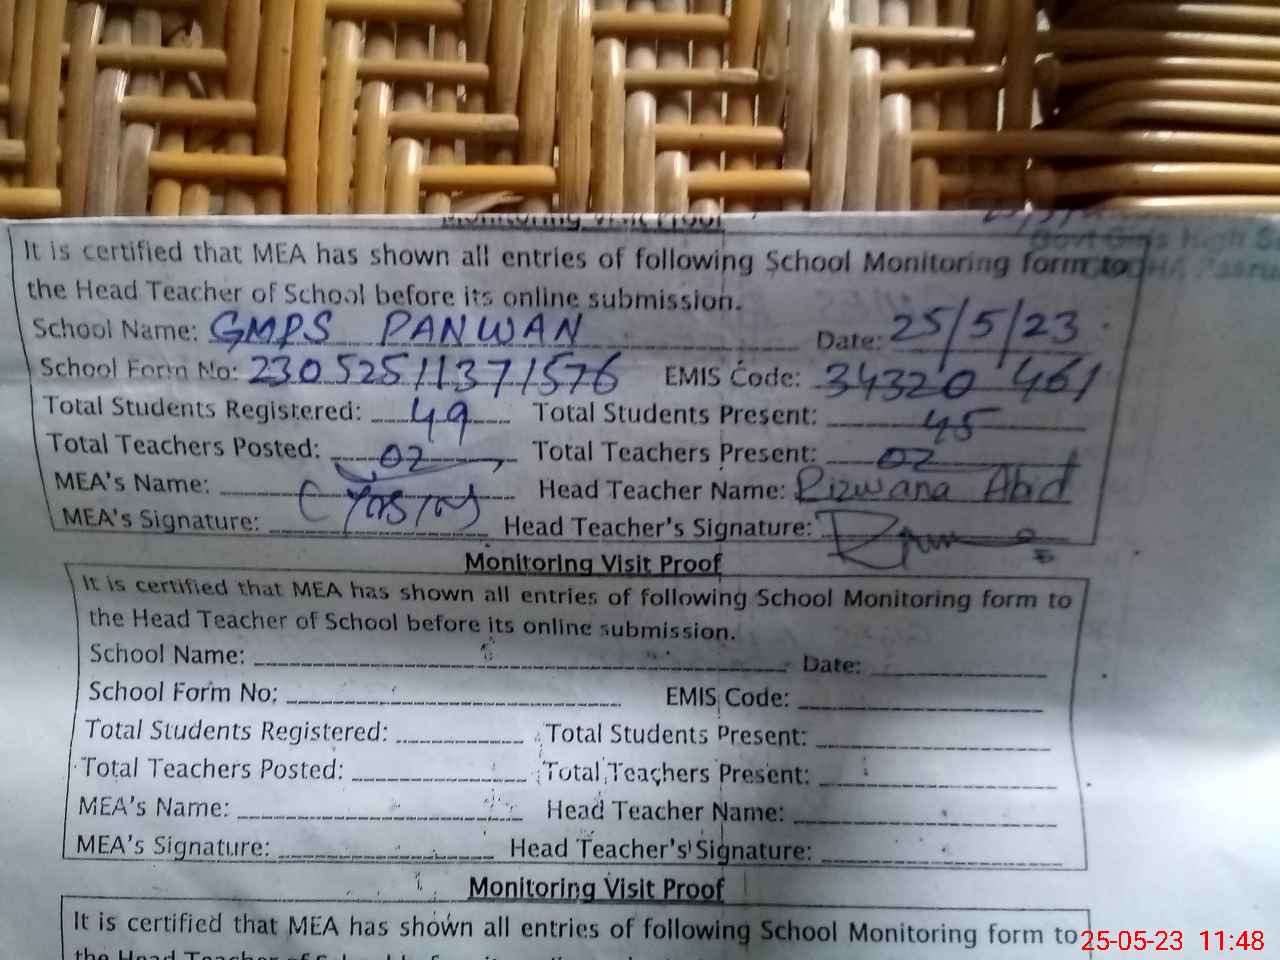 Monitoring Visit Proof
Govt Girls High
It is certified that MEA has shown all entries of following School Monitoring form to
the Head Teacher of School before its online submission.
School Name: GMPS PANWAN Date: 25/5/23
School Form No: 23052511371576 EMIS Code: 34320 461
Total Students Registered: 49 Total Students Present: 45
Total Teachers Posted: 02 Total Teachers Present: 02
MEA's Name: Head Teacher Name: Rizwana Abid
MEA's Signature: Head Teacher's Signature:
Monitoring Visit Proof
It is certified that MEA has shown all entries of following School Monitoring form to
the Head Teacher of School before its online submission.
School Name: Date:
School Form No: EMIS Code:
Total Students Registered: Total Students Present:
Total Teachers Posted: Total Teachers Present:
MEA's Name: Head Teacher Name:
MEA's Signature: Head Teacher's Signature:
Monitoring Visit Proof
It is certified that MEA has shown all entries of following School Monitoring form to
25-05-23 11:48